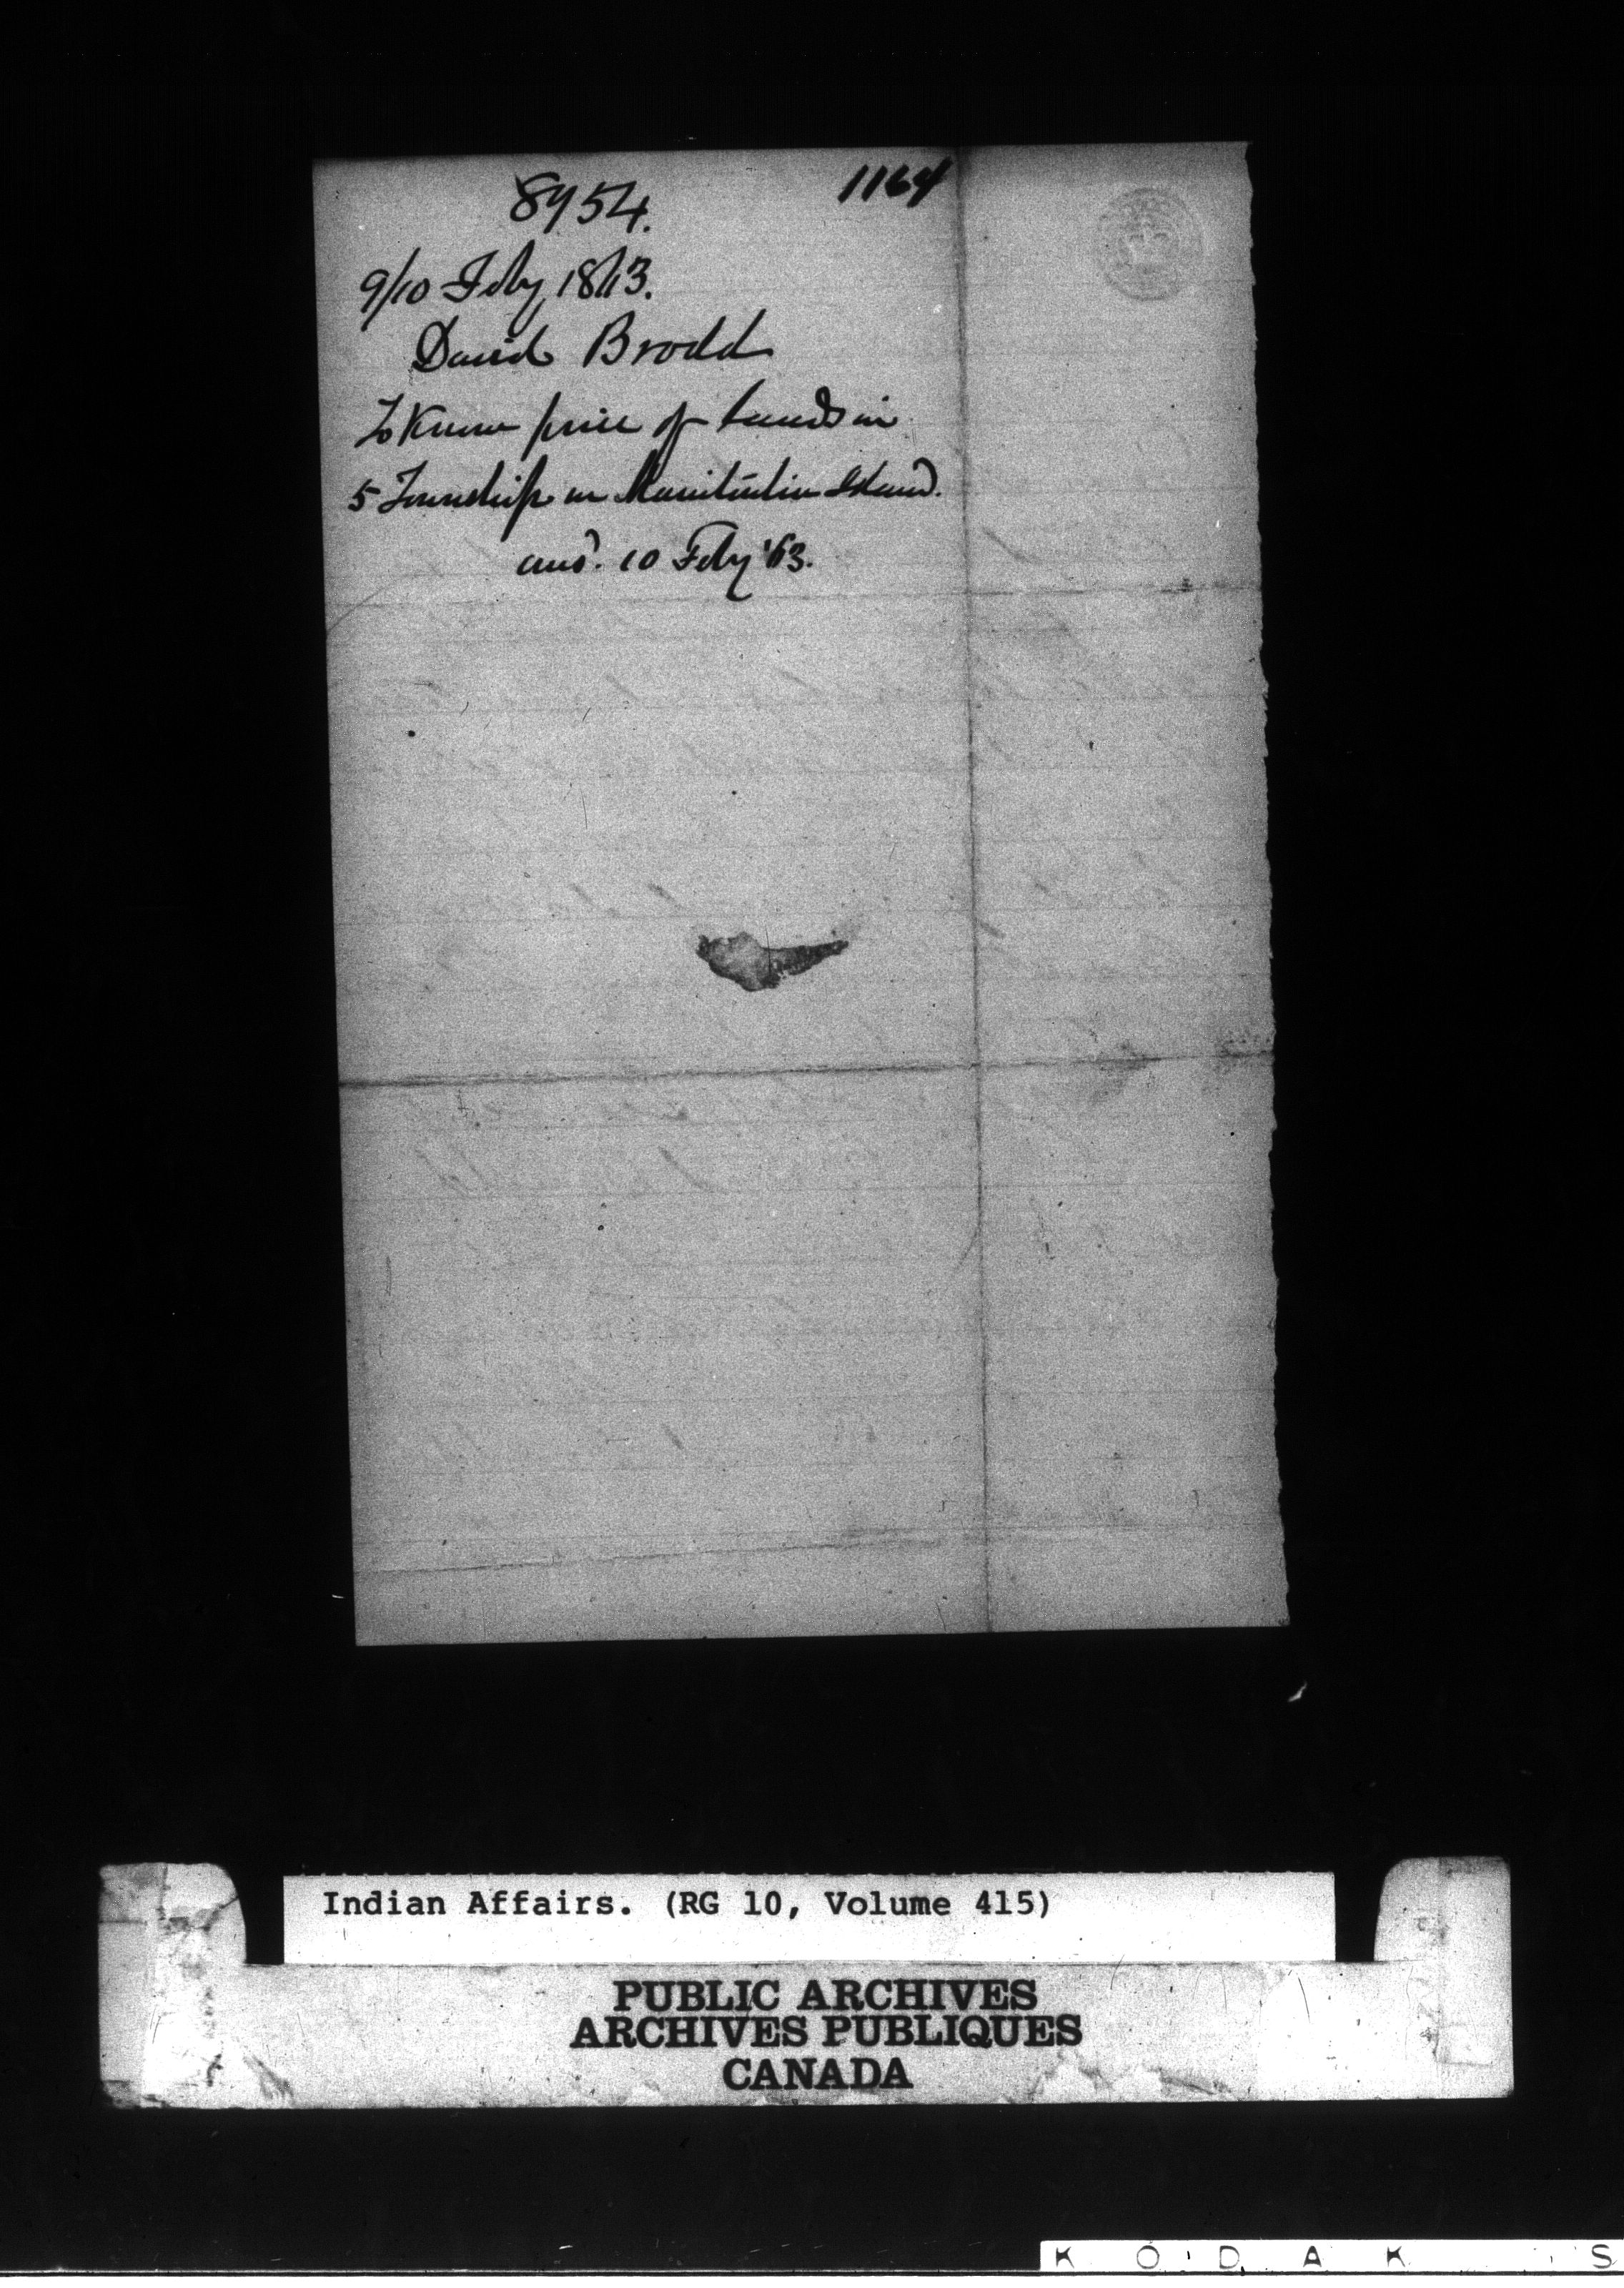 8954.
1164
9/10 Feby 1863.
David Brodd
To Know price of Lands in
5 Township in Manitulin Island.
ansd. 10 Feby '63.
Indian Affairs. (RG 10, Volume 415)
PUBLIC ARCHIVES
ARCHIVES PUBLIQUES
CANADA
K O D A K S